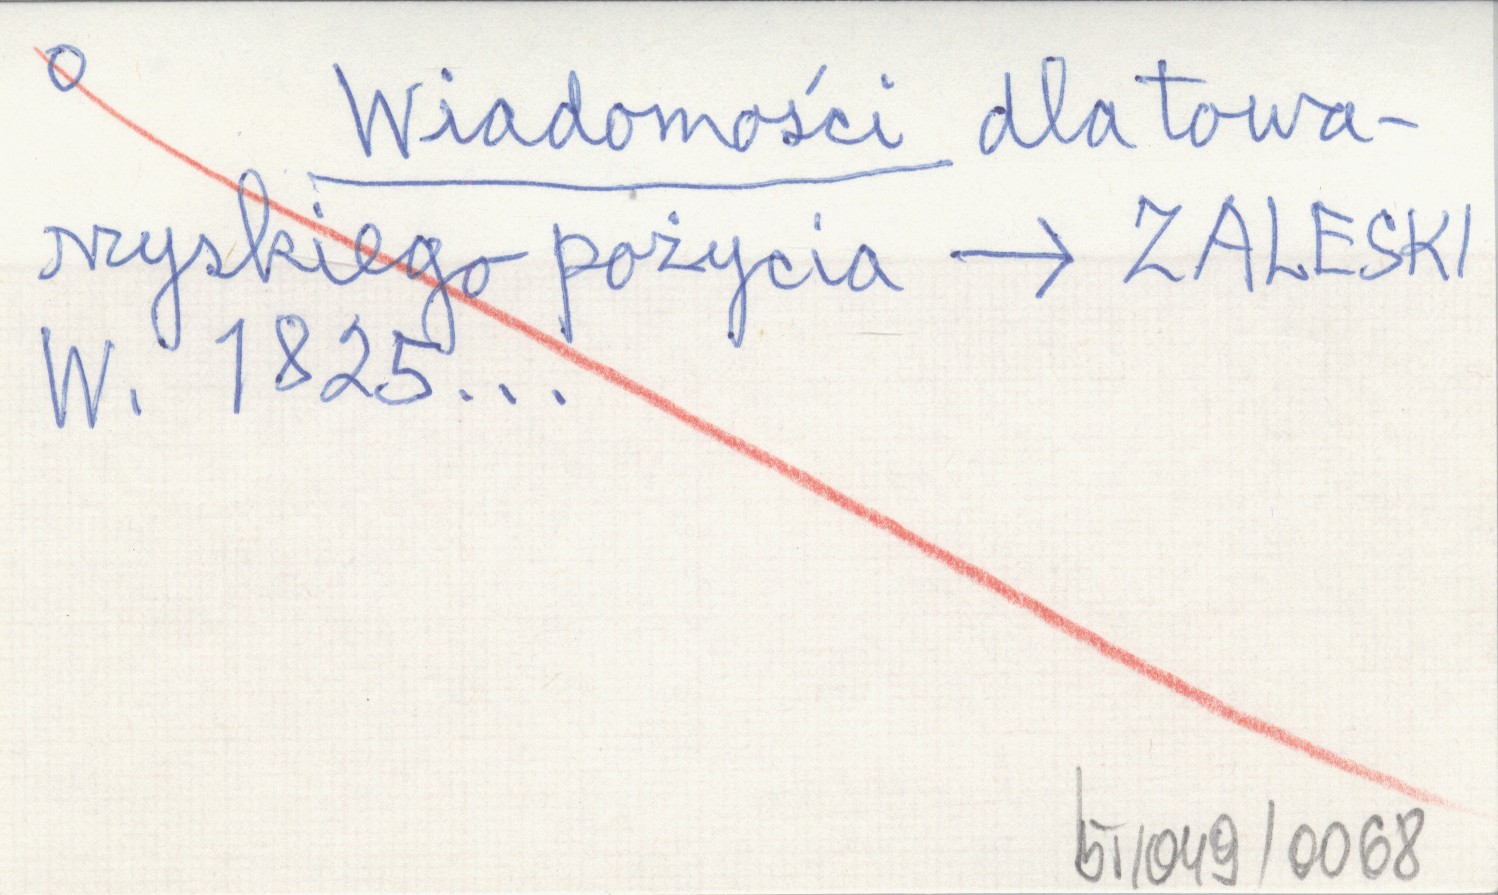 O
Wiadomości dla towa-
rzyskiego pożycia → ZALESKI
W. 1825...
bT/049/0068